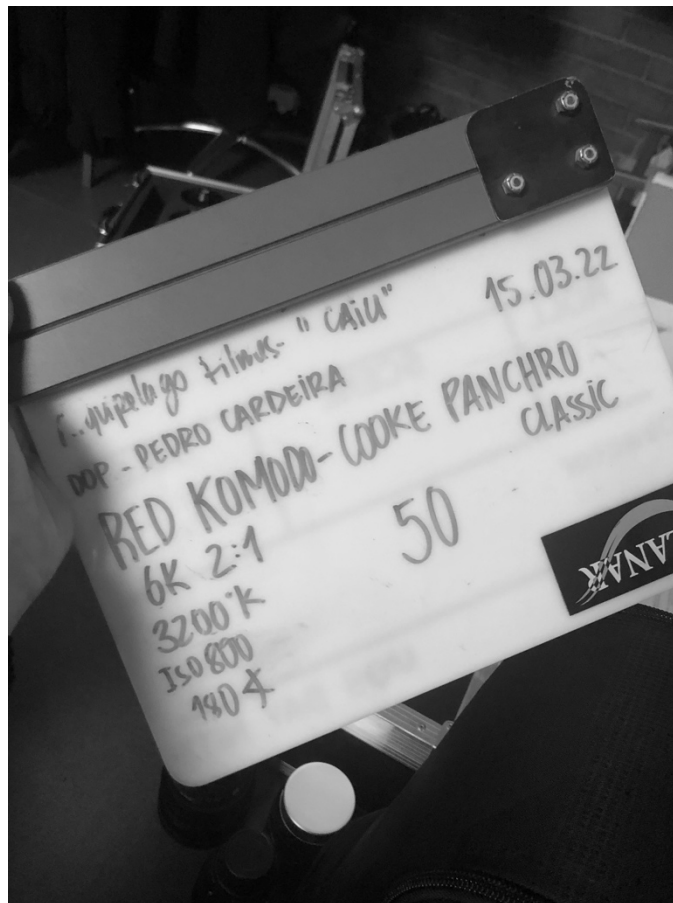 filmes - "CAIU" 15.03.22
DOP - PEDRO CARDEIRA
RED KOMODO - COOKE PANCHRO
CLASSIC
6K 2:1 50
3200°K
ISO 800
180∡
LANAK